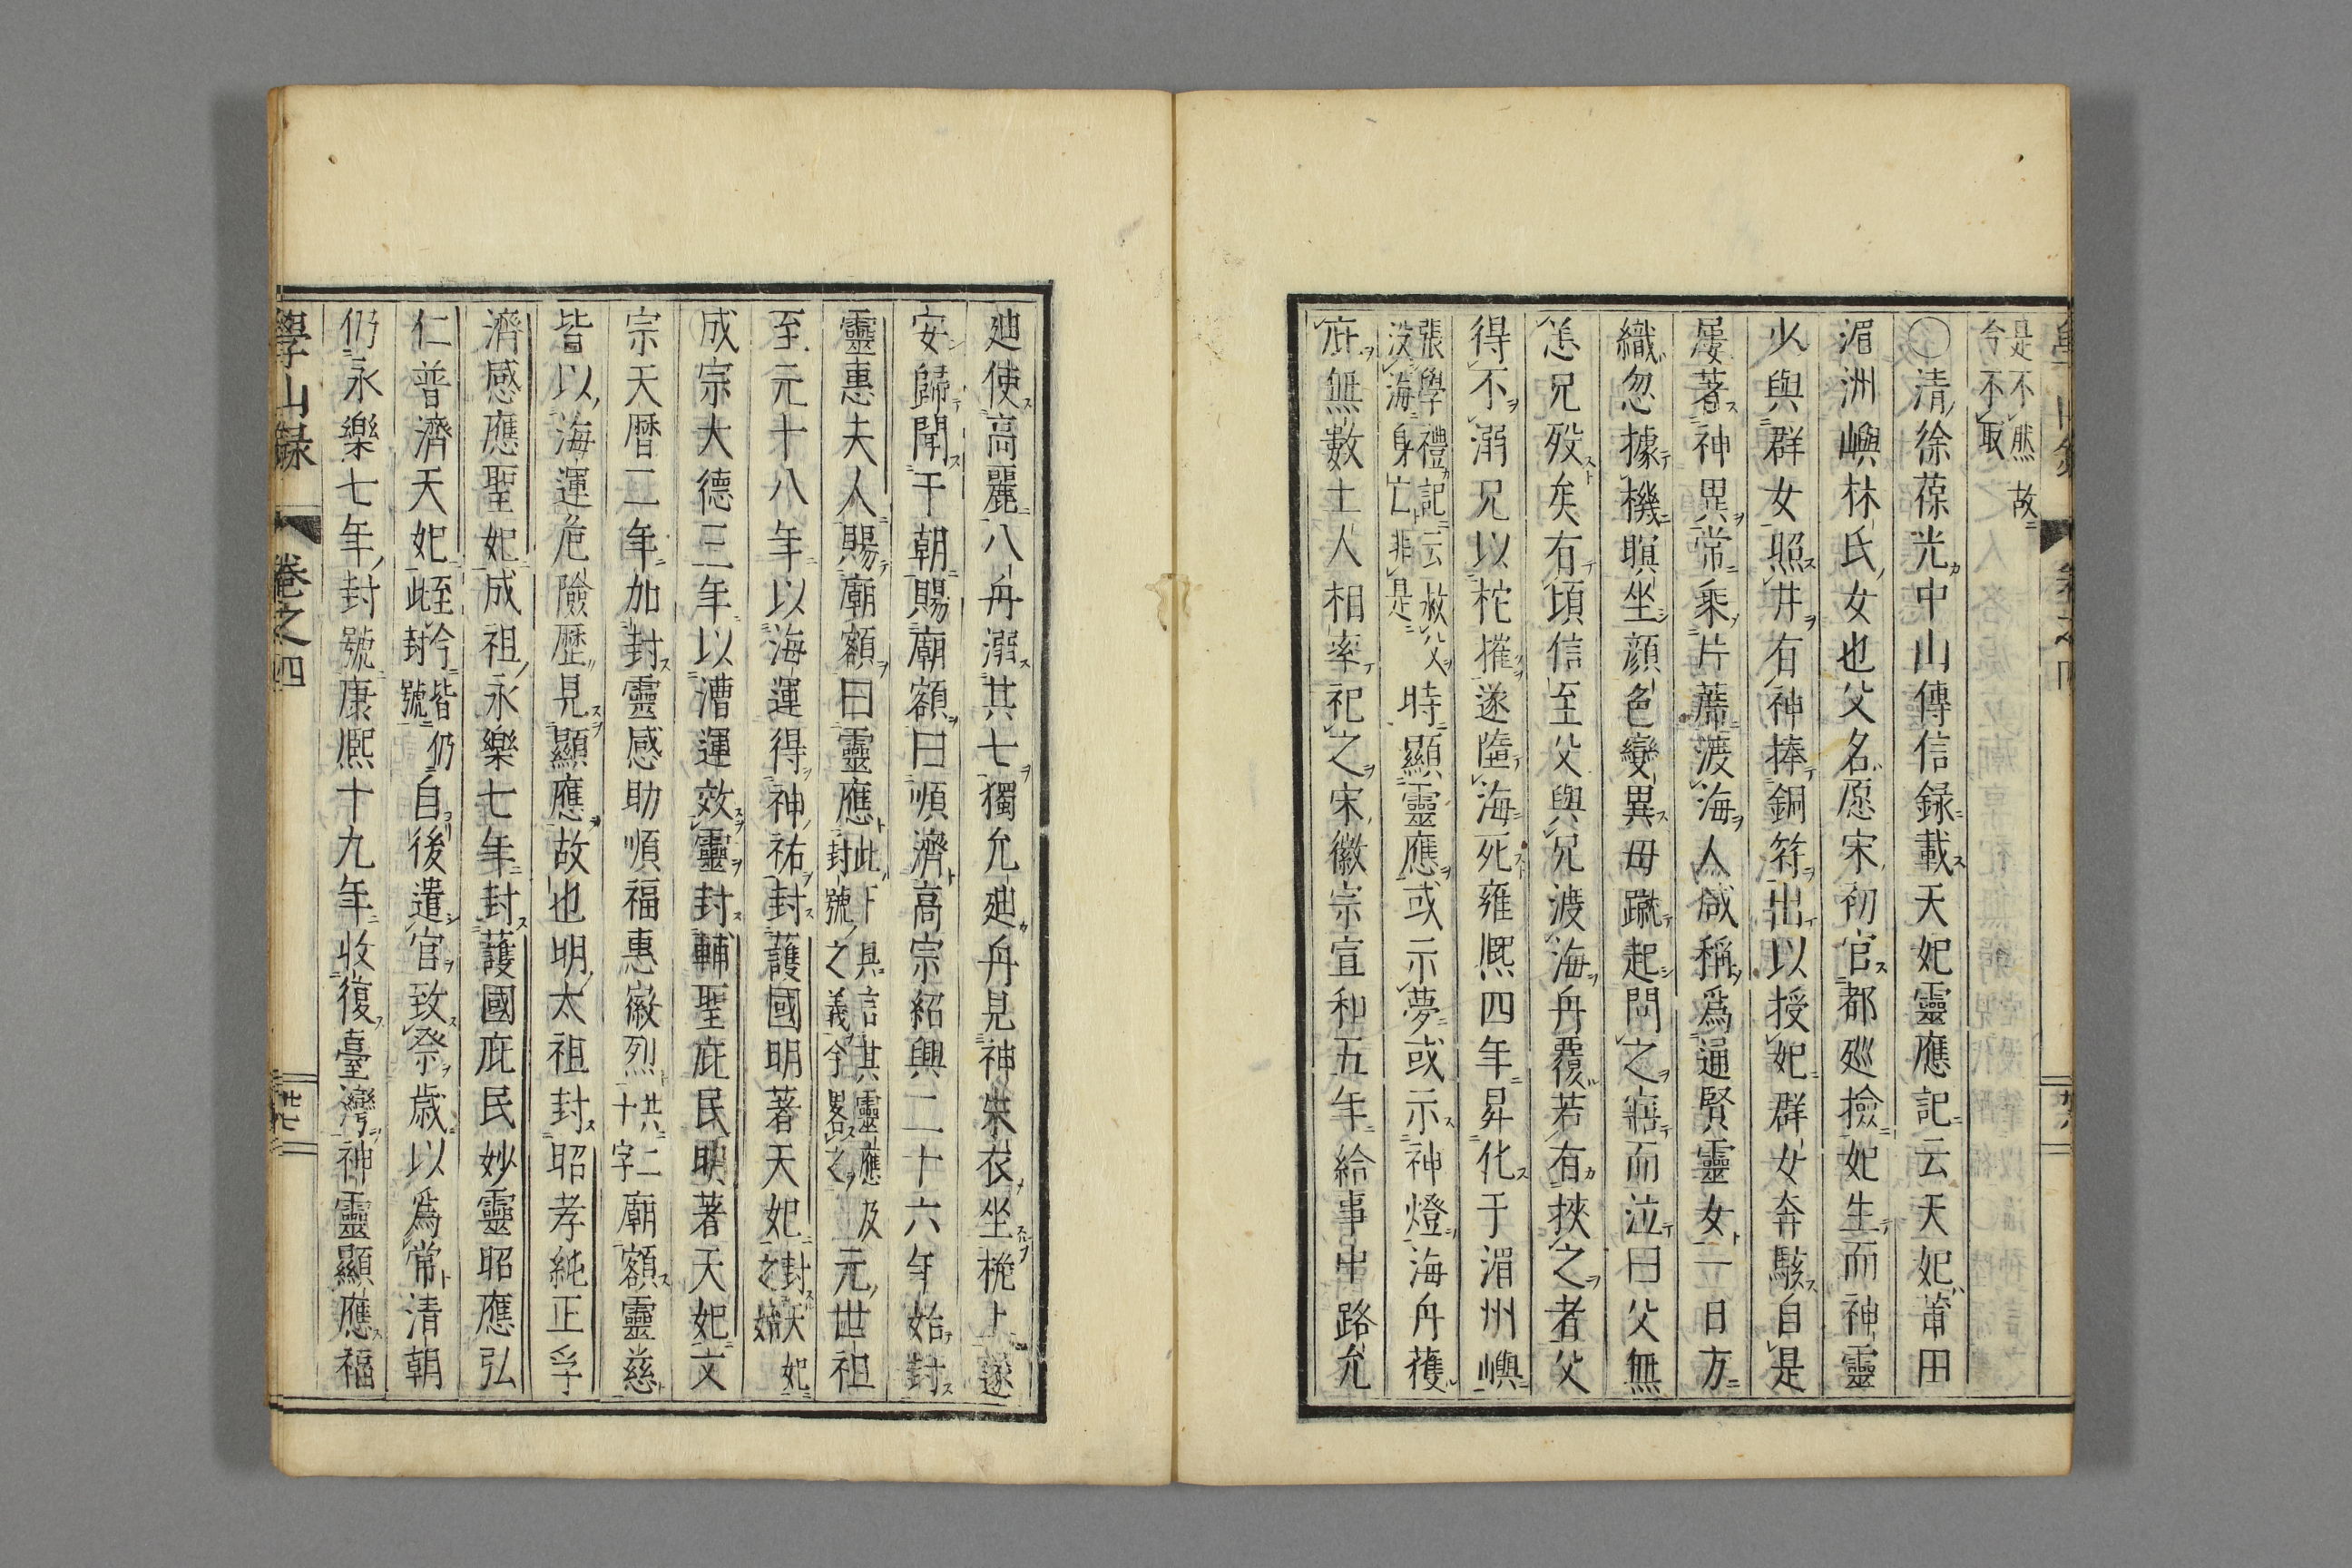 是不然故
今不取
○清徐葆光中山傳信録載天妃靈應記云天妃莆田
湄洲嶼林氏女也父名愿宋初官都廵撿妃生而神靈
少與群女照井有神捧銅符出以授妃群女奔駭自是
屢著神異常乘片蓆渡海人咸稱爲通賢靈女一日方
織忽據機瞑坐顔色變異母蹴起問之寤而泣曰父無
恙兄歿矣有頃信至父與兄渡海舟覆若有挾之者父
得不溺兄以柁摧遂墮海死雍熙四年昇化于湄州嶼
張學禮記云救父
没海身亡非是
時顯靈應或示夢或示神燈海舟獲
庇無數土人相率祀之宋徽宗宣和五年給事中路允
廸使高麗八舟溺其七獨允廸舟見神朱衣坐桅上遂
安歸聞于朝賜廟額曰順濟高宗紹興二十六年始封
靈惠夫人賜廟額曰靈應
此下具言其靈應及
封號之義今畧之
元世祖
至元十八年以海運得神祐封護國明著天妃
封天妃
之始
成宗大德三年以漕運效靈封輔聖庇民明著天妃文
宗天暦二年加封靈感助順福惠徽烈
共二
十字
廟額靈慈
皆以海運危險歴見顯應故也明太祖封昭孝純正孚
濟感應聖妃成祖永樂七年封護國庇民妙靈昭應弘
仁普濟天妃
至今皆仍
此封號
自後遣官致祭歳以爲常清朝
仍永樂七年封號康熙十九年收復臺灣神靈顯應福
學山録 卷之四
廿七